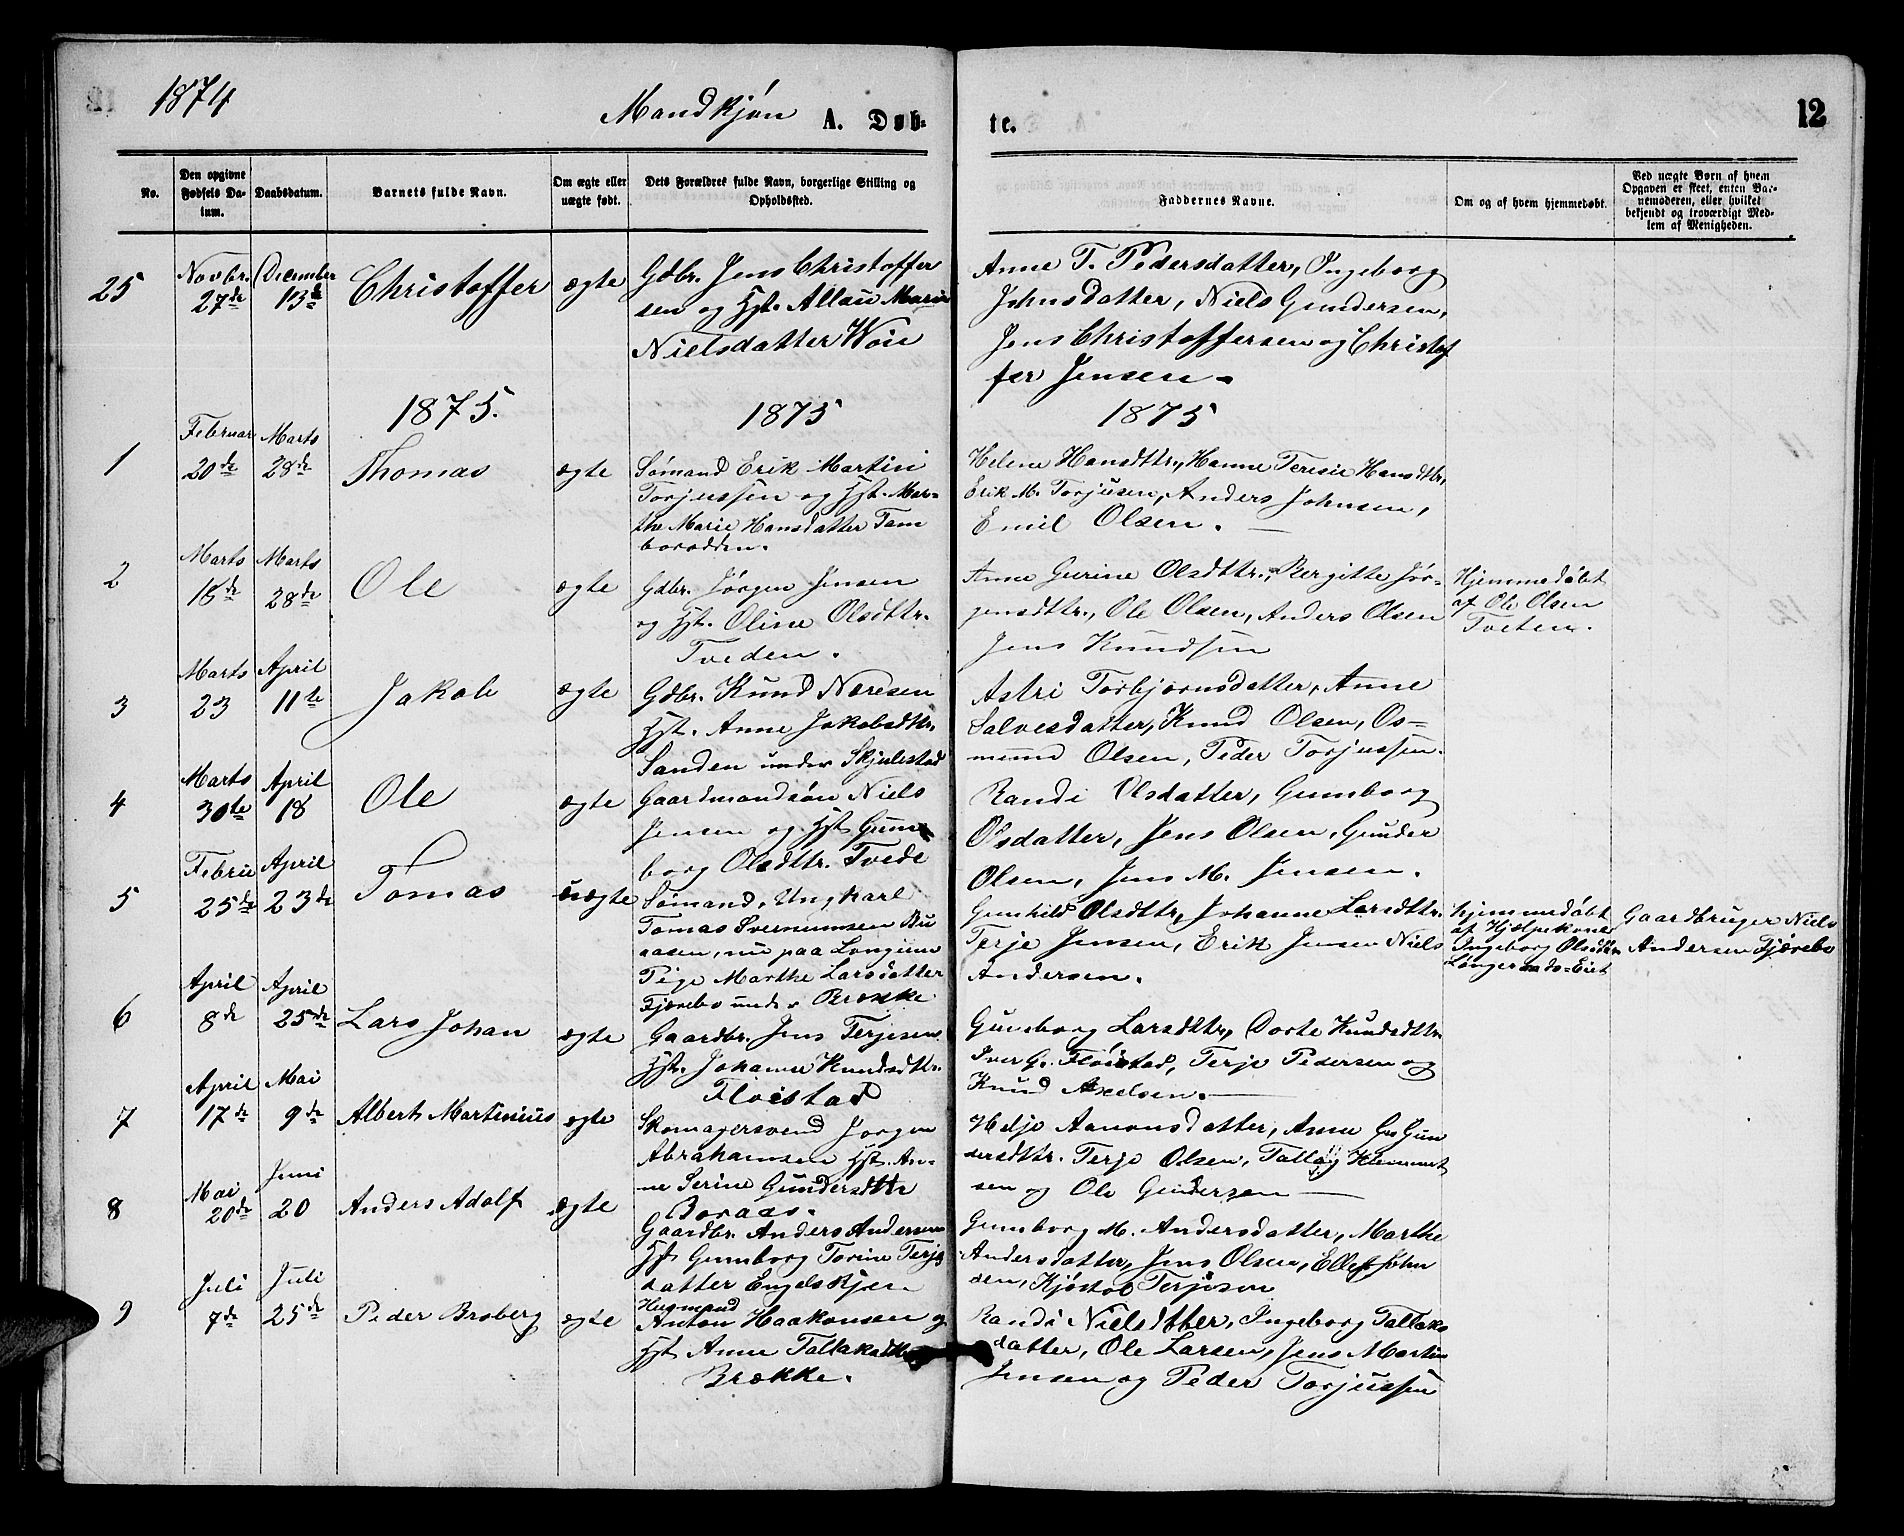 1874
Mandkjøn A. Døb-
te.
12
No.
Den opgivne Fødsels Datum.
Daabsdatum.
Barnets fulde Navn.
Om ægte eller uægte født.
Dets Forældres fulde Navn, borgerlige Stilling og Opholdssted.
Faddernes Navne.
Om og af hvem hjemmedøbt.
Ved uægte Børn af hvem Opgaven er skeet, enten Barnemoderen, eller hvilket bekjendt og troværdigt Medlem af Menigheden.
25
Novbr. 27de
December 13de
Christoffer
ægte
Gdbr. Jens Christoffer
sen og Hst. Allau Marie
Nielsdatter Woie
Anne T. Pedersdatter, Ingeborg
Johnsdatter, Niels Gundersen,
Jens Christoffersen og Christof
fer Jensen.
1875.
1875
1875
1
Februar 20de
Marts 28de
Thomas
ægte
Sømand Erik Martin
Torjussen og Hst. Mar-
the Marie Hansdatter Tam
borodden.
Helene Hansdttr., Hanne Teresie Hansdttr,
Erik M. Torjusen, Anders Johnsen,
Emil Olsen.
2
Marts 18de
Marts 28de
Ole
ægte
Gdbr. Jørgen Jensen
og Hst. Oline Olsdttr.
Tveden.
Anne Gurine Olsdttr., Bergitte Jør-
gensdttr., Ole Olsen, Anders Olsen
Jens Knudsen
Hjemmedøbt
af Ole Olsen
Tveten.
3
Marts 23
April 11te
Jakob
ægte
Gdbr. Knud Næresen
Hst. Anne Jakobsdttr.
Sanden under Skjulestad
Astri Torbjørnsdatter, Anne
Salvesdatter, Knud Olsen, Os-
mund Olsen, Peder Torjussen.
4
Marts 30te
April 18
Ole
ægte
Gaardmandsøn Niels
Jensen og Hst Gun
borg Olsdttr. Tvede
Randi Olsdatter, Gunborg
Olsdatter, Jens Olsen, Gunder
Olsen, Jens M. Jensen.
5
Febru 25de
April 23de
Tomas
uægte
Sømand, Ungkarl
Tomas Svennumsen Bu
aasen, nu paa Longum
Pige Marthe Larsdatter
Fjærebo under Brække
Gunhild Olsdttr, Johanne Larsdttr.
Terje Jensen, Erik Jensen Niels
Andersen.
hjemmedøbt
af Hjælpekone
Ingeborg Olsdttr
Longumds-Eiet
Gaardbruger Niels
Andersen Fjærebo
6
April 8de
April 25de
Lars Johan
ægte
Gaardbr. Jens Terjesen
Hst. Johanne Knudsdttr.
Fløistad
Gunborg Larsdttr, Dorte Knudsdttr.
Iver G. Fløistad, Terje Pedersen og
Knud Axelsen.
7
April 17de
Mai 9de
Albert Martinius
ægte
Skomagersvend Jørgen
Abrahamsen Hst. An-
ne Serine Gundersdttr
Boraas.
Helje Aanonsdatter, Anne Gun
dersdttr. Terje Olsen, Tallag Klemmet
sen og Ole Gundersen
8
Mai 20de
Juni 20
Anders Adolf
ægte
Gaardbr. Anders Andersen
Hst Gunborg Torine Terjes
datter Engelskjøn
Gunborg M. Andersdatter, Marthe
Andersdatter, Jens Olsen, Ellef John
den, Kjøstol Terjesen
9
Juli 7de
Juli 25de
Peder Broberg
ægte
Husmand
Anton Haakonsen og
Hst Anne Tallaksdttr
Brække.
Randi Nielsdtter, Ingeborg Tallaks
datter, Ole Larsen, Jens Martin
Jensen og Peder Torjussen